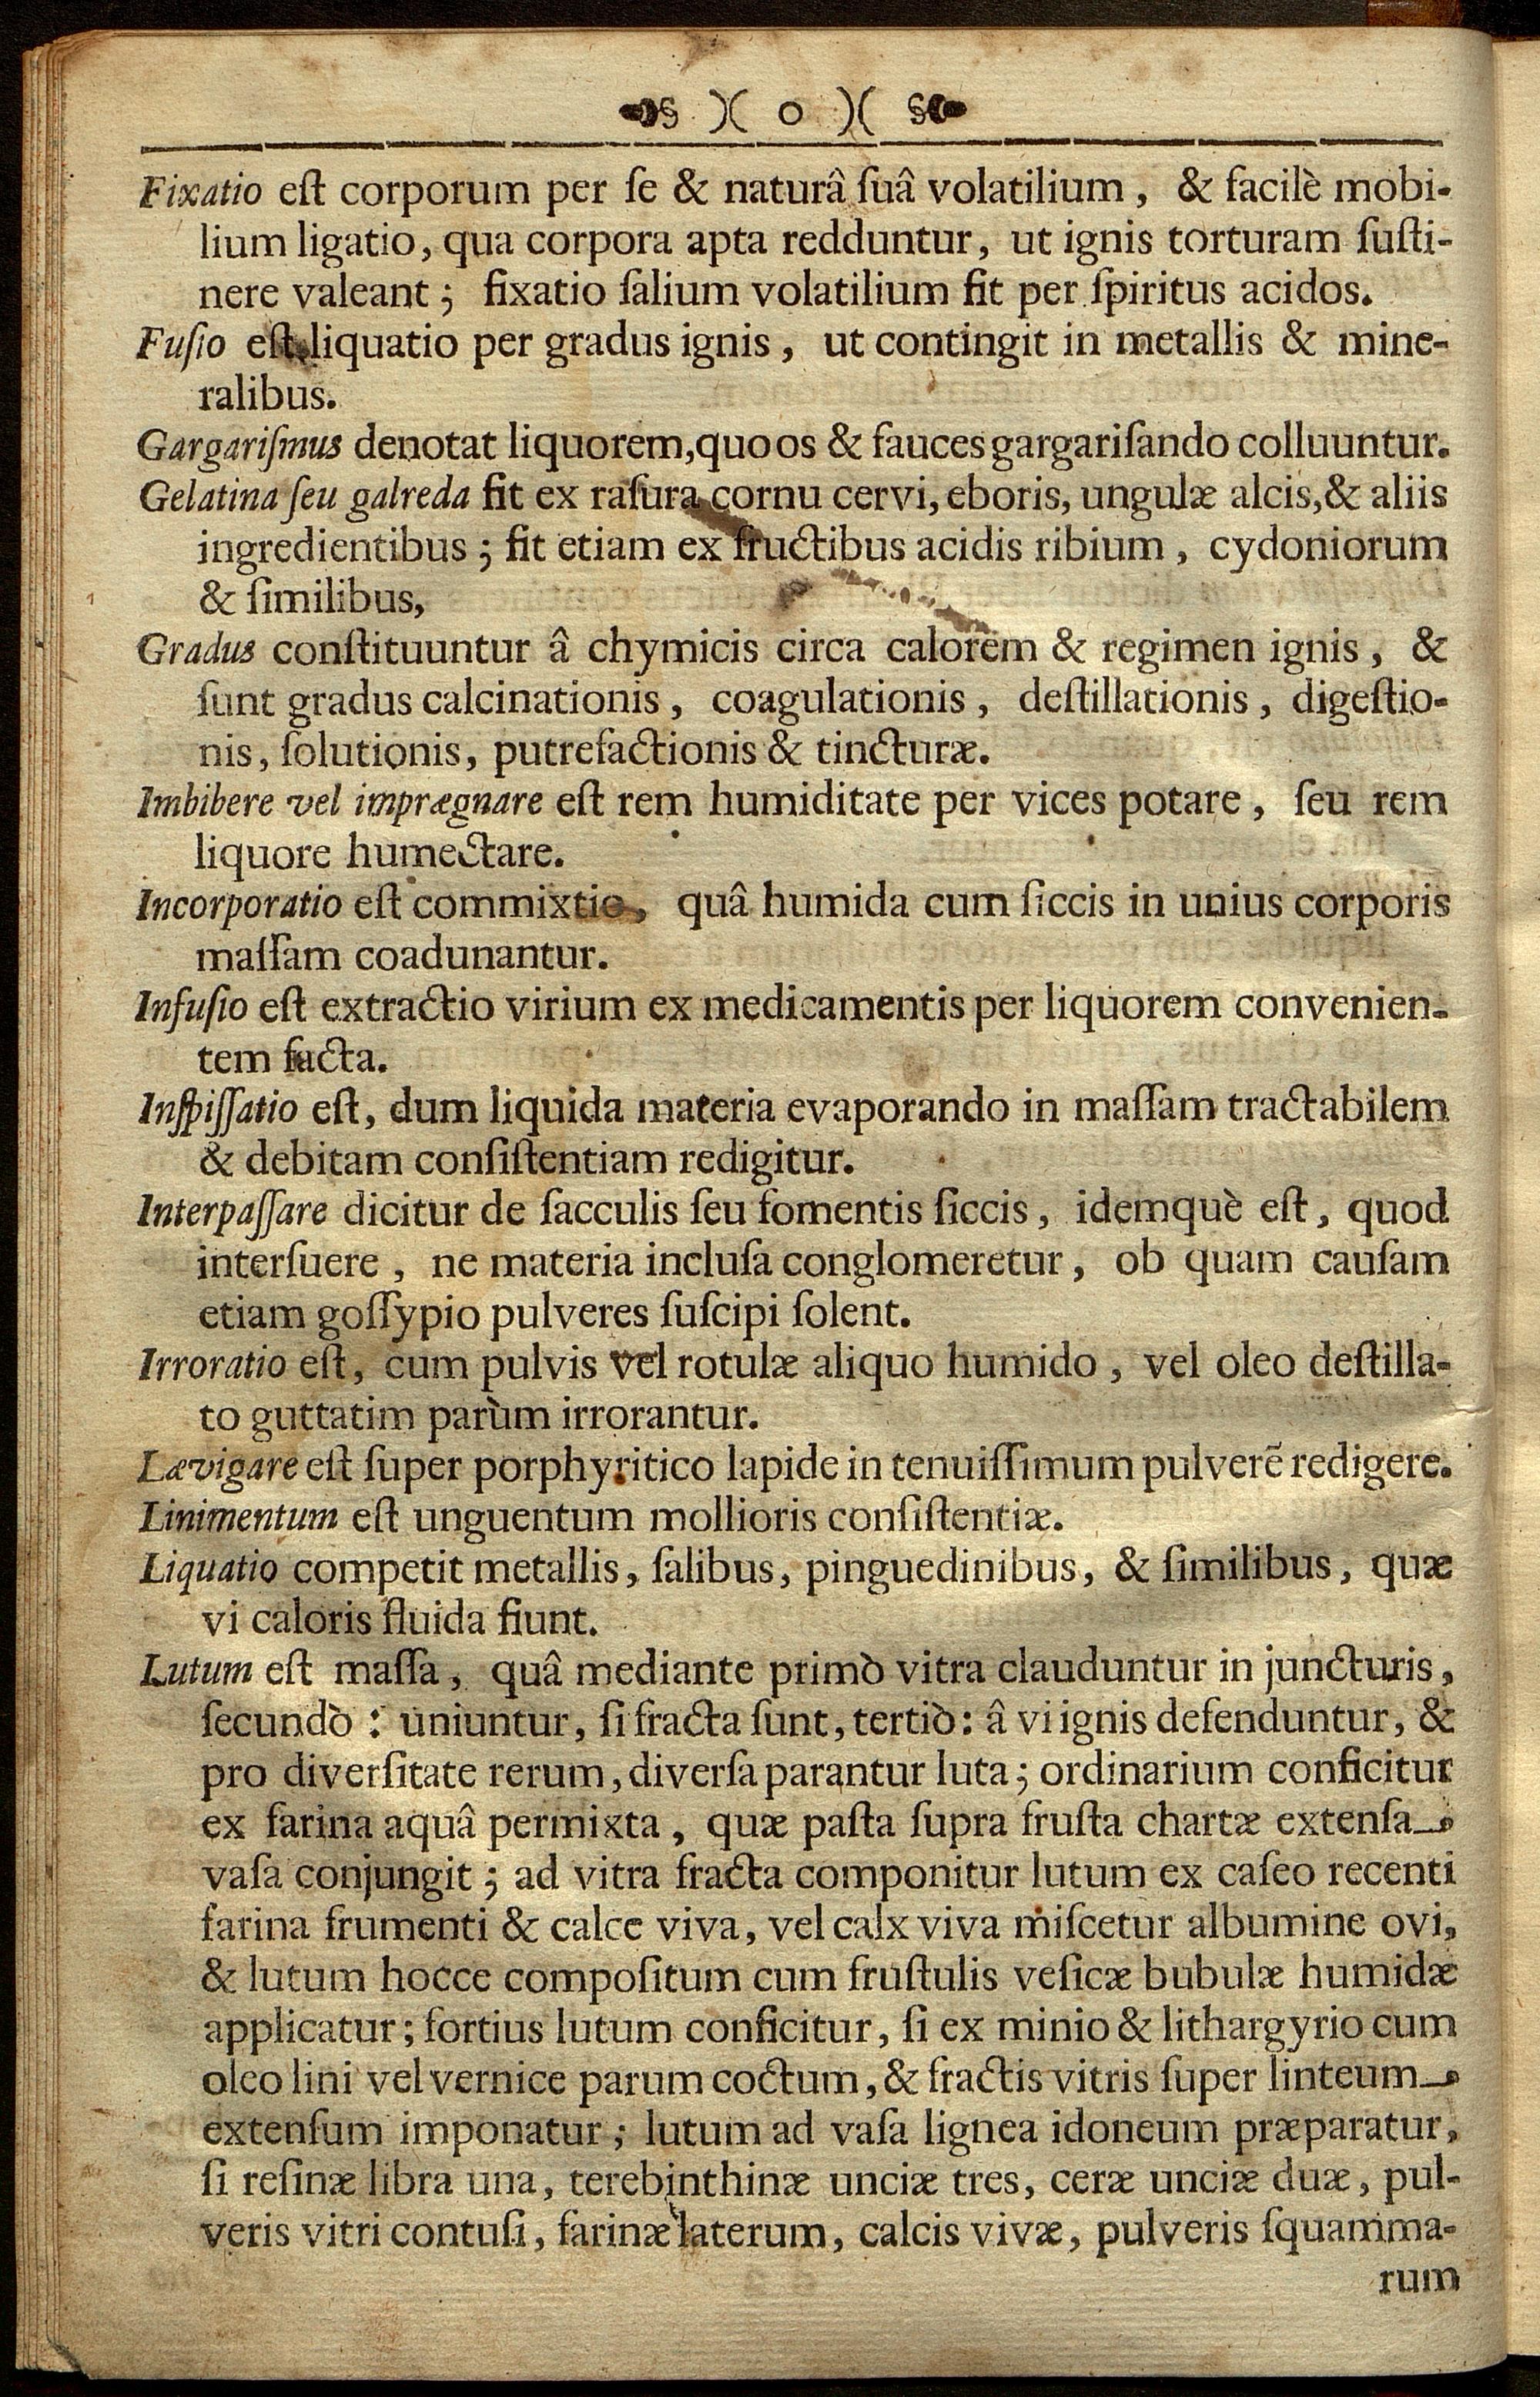 )( o )(
Fixatio est corporum per se & naturâ suâ volatilium, & facilè mobi-
lium ligatio, qua corpora apta redduntur, ut ignis torturam susti-
nere valeant; fixatio salium volatilium fit per spiritus acidos.
Fusio est liquatio per gradus ignis, ut contingit in metallis & mine-
ralibus.
Gargarismus denotat liquorem, quo os & fauces gargarisando colluuntur.
Gelatina seu galreda fit ex rasura cornu cervi, eboris, ungulæ alcis, & aliis
ingredientibus; fit etiam ex fructibus acidis ribium, cydoniorum
& similibus,
Gradus constituuntur â chymicis circa calorem & regimen ignis, &
sunt gradus calcinationis, coagulationis, destillationis, digestio-
nis, solutionis, putrefactionis & tincturæ.
Imbibere vel imprægnare est rem humiditate per vices potare, seu rem
liquore humectare.
Incorporatio est commixtio, quâ humida cum siccis in unius corporis
massam coadunantur.
Infusio est extractio virium ex medicamentis per liquorem convenien-
tem facta.
Inspissatio est, dum liquida materia evaporando in massam tractabilem
& debitam consistentiam redigitur.
Interpassare dicitur de sacculis seu fomentis siccis, idemquè est, quod
intersuere, ne materia inclusa conglomeretur, ob quam causam
etiam gossypio pulveres suscipi solent.
Irroratio est, cum pulvis vel rotulæ aliquo humido, vel oleo destilla-
to guttatim parùm irrorantur.
Lævigare est super porphyritico lapide in tenuissimum pulverẽ redigere.
Linimentum est unguentum mollioris consistentiæ.
Liquatio competit metallis, salibus, pinguedinibus, & similibus, quæ
vi caloris fluida fiunt.
Lutum est massa, quâ mediante primò vitra clauduntur in juncturis,
secundò: uniuntur, si fracta sunt, tertiò: â vi ignis defenduntur, &
pro diversitate rerum, diversa parantur luta; ordinarium conficitur
ex farina aquâ permixta, quæ pasta supra frusta chartæ extensa
vasa conjungit; ad vitra fracta componitur lutum ex caseo recenti
farina frumenti & calce viva, vel calx viva miscetur albumine ovi,
& lutum hocce compositum cum frustulis vesicæ bubulæ humidæ
applicatur; fortius lutum conficitur, si ex minio & lithargyrio cum
oleo lini vel vernice parum coctum, & fractis vitris super linteum
extensum imponatur; lutum ad vasa lignea idoneum præparatur,
si resinæ libra una, terebinthinæ unciæ tres, ceræ unciæ duæ, pul-
veris vitri contusi, farinæ laterum, calcis vivæ, pulveris squamma-
rum